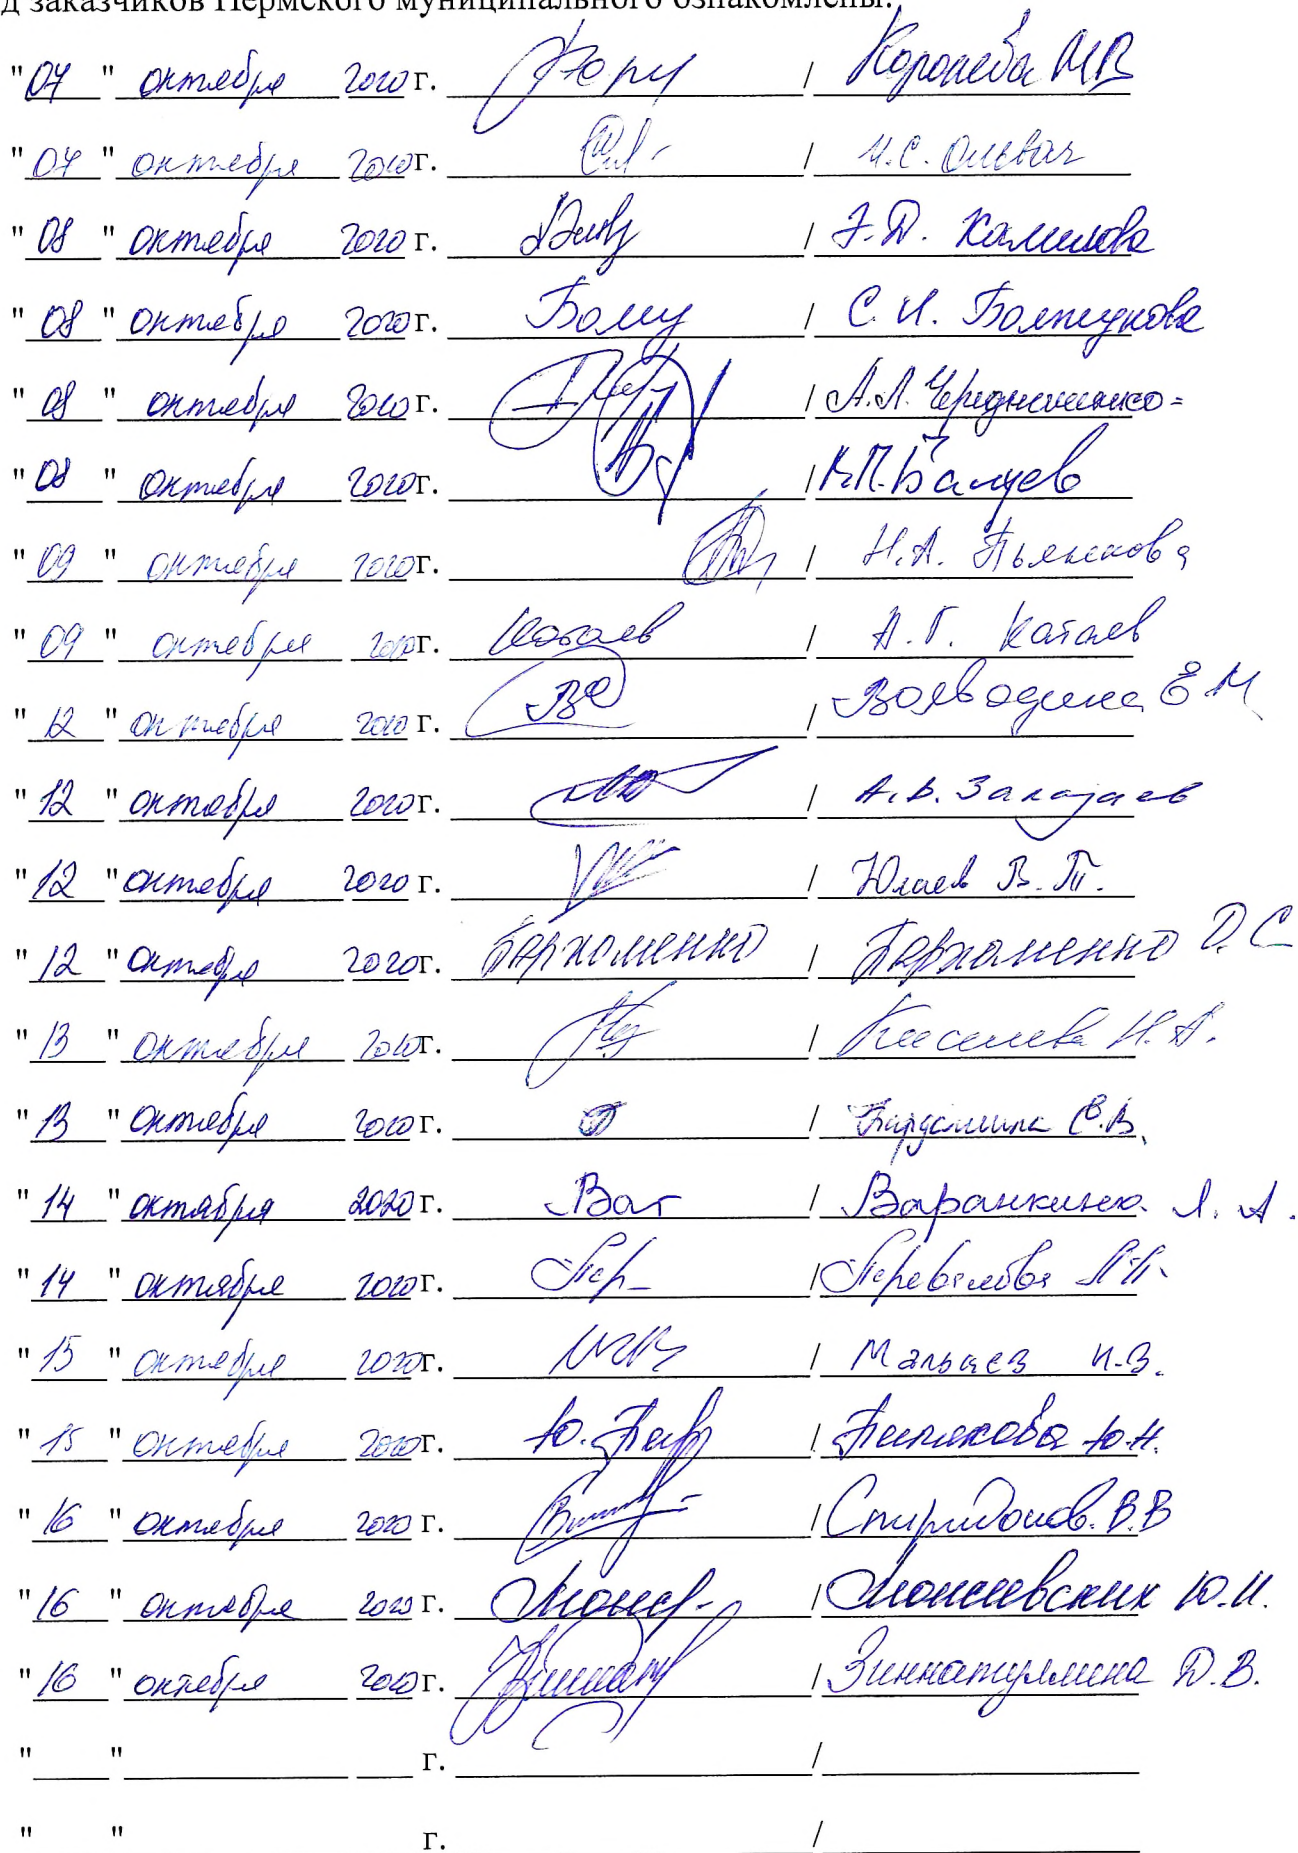 д заказчиков Пермского муниципального ознакомлены:
"07" октября 2020 г. / Королева МВ
"07" октября 2020 г. / И.С.
"08" октября 2020 г. / Э.Д. Камилова
"08" октября 2020 г. / С.И. Болтукова
"08" октября 2020 г. / А.А. Чередниченко
"08" октября 2020 г. / Балуев
"09" октября 2020 г. / Н.А. Пьянкова
"09" октября 2020 г. Катаев / А.Г. Катаев
"12" октября 2020 г. / Воеводина Е М
"12" октября 2020 г. / А.В.
"12" октября 2020 г. / Юлаев В.Т.
"12" октября 2020 г. Пархоменко / Пархоменко D.С
"13" октября 2020 г. / Киселева Н.А.
"13" октября 2020 г. / С.В.
"14" октября 2020 г. / Варанкина Л.А.
"14" октября 2020 г. / Перевалова
"15" октября 2020 г. / Мальцев И.В.
"15" октября 2020 г. / Ю.Н.
"16" октября 2020 г. / Спиридонов В.В
"16" октября 2020 г. / Моисеевских Ю.И.
"16" октября 2020 г. / Зиннатуллина Д.В.
" " г. /
" " г. /